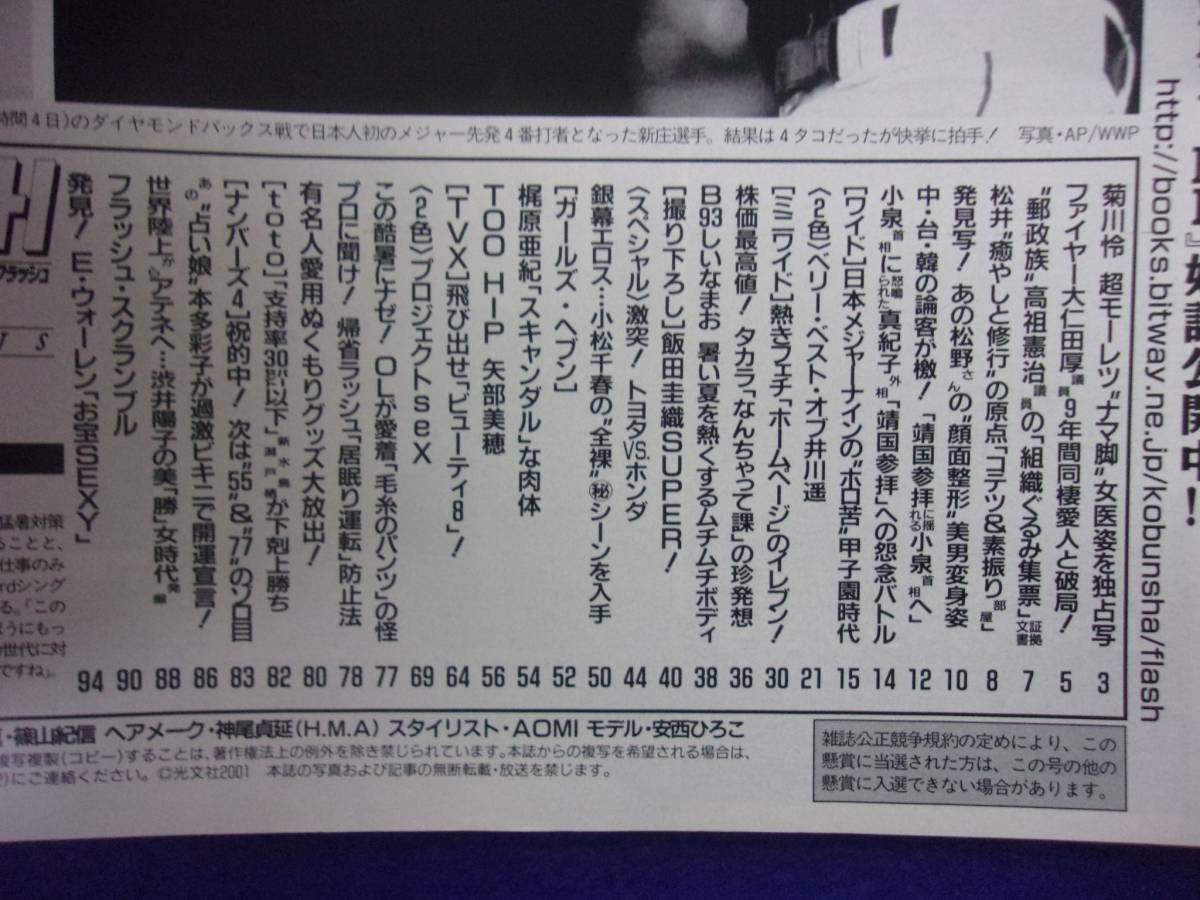 時間4日)のダイヤモンドバックス戦で日本人初のメジャー先発4番打者となった新庄選手。結果は4タコだったが快挙に拍手! 写真・AP/WWP
http://books.bitway.ne.jp/kobunsha/flash
公開中!
フラッシュ
菊川怜 超モーレツ“ナマ脚”女医姿を独占写 3
ファイヤー大仁田厚議員9年間同棲愛人と破局! 5
“郵政族”高祖憲治議員の「組織ぐるみ集票」証拠文書 7
松井“癒やしと修行”の原点「コテツ&素振り部屋」 8
発見写! あの松野さんの“顔面整形”美男変身姿 10
中・台・韓の論客が檄! 「靖国参拝に揺れる小泉首相へ」 12
小泉首相に怒鳴られた真紀子外相「靖国参拝」への怨念バトル 14
[ワイド]日本メジャーナインの“ホロ苦”甲子園時代 15
〈2色〉ベリー・ベスト・オブ井川遥 21
[ミニワイド]熱きフェチ「ホームページ」のイレブン! 30
株価最高値! タカラ「なんちゃって課」の珍発想 36
B93しいなまお 暑い夏を熱くするムチムチボディ 38
[撮り下ろし]飯田圭織SUPER! 40
〈スペシャル〉激突! トヨタVS.ホンダ 44
銀幕エロス…小松千春の“全裸”㊙シーンを入手 50
[ガールズ・ヘブン] 52
梶原亜紀「スキャンダル」な肉体 54
TOO HIP 矢部美穂 56
[TVX]飛び出せ「ビューティ8」! 64
〈2色〉プロジェクトseX 69
この酷暑にナゼ! OLが愛着「毛糸のパンツ」の怪 77
プロに聞け! 帰省ラッシュ「居眠り運転」防止法 78
有名人愛用ぬくもりグッズ大放出! 80
[toto]「支持率30パーセント以下」新潟 水戸 鳥栖が下剋上勝ち 82
[ナンバーズ4]祝的中! 次は“55”&“77”のゾロ目 83
あの“占い娘”本多彩子が過激ビキニで開運宣言! 86
世界陸上からアテネへ…渋井陽子の美「勝」女時代発掘 88
フラッシュ・スクランブル 90
発見! E・ウォーレン「お宝SEXY」 94
猛暑対策
ることと、
仕事のみ
rdシング
る。「この
ほうにもっ
世代に対
ですね」。
・篠山紀信 ヘアメーク・神尾貞延(H.M.A) スタイリスト・AOMI モデル・安西ひろこ
複写複製(コピー)することは、著作権法上の例外を除き禁じられています。本誌からの複写を希望される場合は、
)にご連絡ください。©光文社2001 本誌の写真および記事の無断転載・放送を禁じます。
雑誌公正競争規約の定めにより、この
懸賞に当選された方は、この号の他の
懸賞に入選できない場合があります。